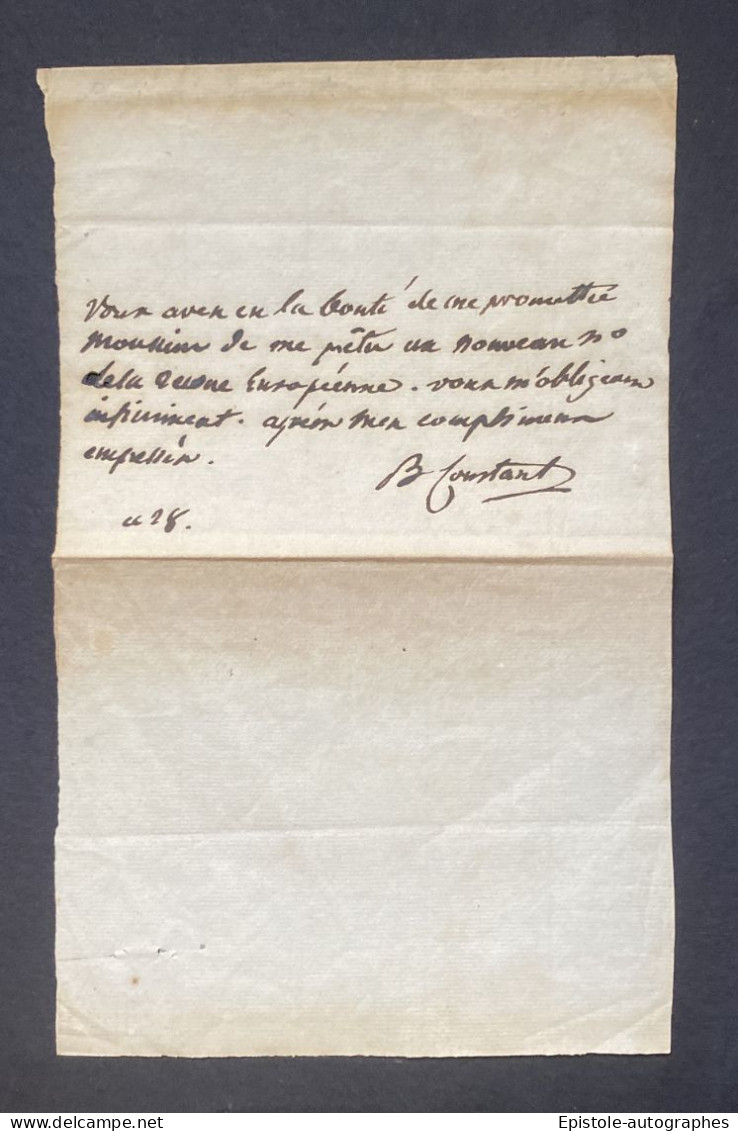 Vous avez eu la bonté de me promettre
Monsieur de me prêter un nouveau no
de la Revue Européenne. vous m'obligerez
infiniment. agréez mes complimens
empressés.
B Constant
ce 28.
delcampe.net
Epistole-autographes